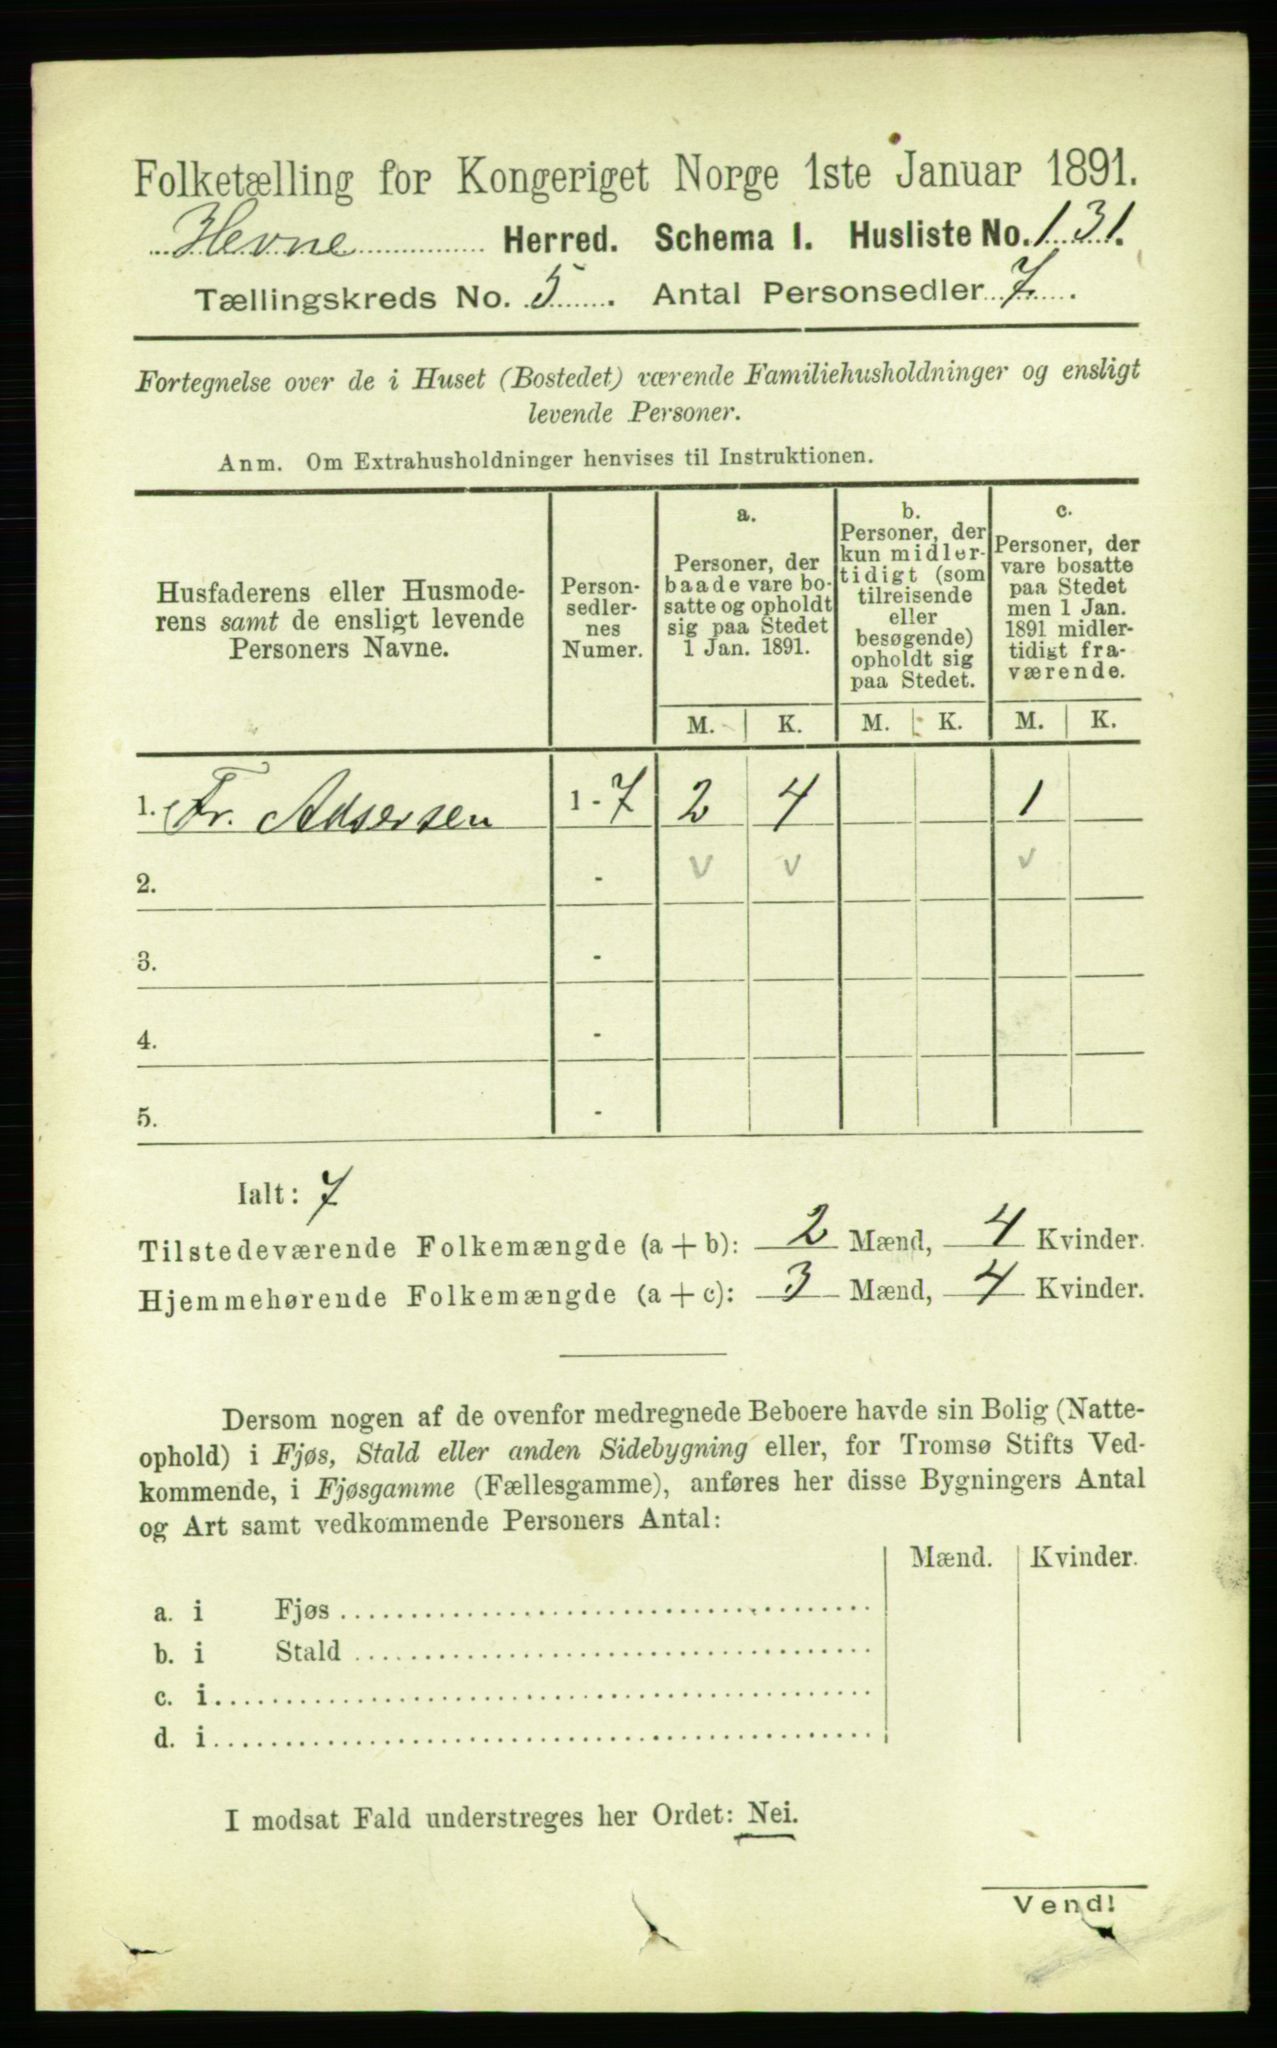 Folketælling for Kongeriget Norge 1ste Januar 1891.
Hevne Herred. Schema 1. Husliste No. 131.
Tællingskreds No. 5. Antal Personsedler 7.
Fortegnelse over de i Huset (Bostedet) værende Familiehusholdninger og ensligt
levende Personer.
Anm. Om Extrahusholdninger henvises til Instruktionen.
Husfaderens eller Husmode-
rens samt de ensligt levende
Personers Navne.
Person-
sedler-
nes
Numer.
a.
Personer, der
baade vare bo-
satte og opholdt
sig paa Stedet
1 Jan. 1891.
b.
Personer, der
kun midler-
tidigt (som
tilreisende
eller
besøgende)
opholdt sig
paa Stedet.
c.
Personer, der
vare bosatte
paa Stedet
men 1 Jan.
1891 midler-
tidigt fra-
værende.
M. K. M. K. M. K.
1. Fr. Adsersen 1 - 7 2 4 1
2. - v v v
3. -
4. -
5. -
Ialt: 7
Tilstedeværende Folkemængde (a + b): 2 Mænd, 4 Kvinder.
Hjemmehørende Folkemængde (a + c): 3 Mænd, 4 Kvinder.
Dersom nogen af de ovenfor medregnede Beboere havde sin Bolig (Natte-
ophold) i Fjøs, Stald eller anden Sidebygning eller, for Tromsø Stifts Ved-
kommende, i Fjøsgamme (Fællesgamme), anføres her disse Bygningers Antal
og Art samt vedkommende Personers Antal:
Mænd. Kvinder.
a. i Fjøs
b. i Stald
c. i
d. i
I modsat Fald understreges her Ordet: Nei.
Vend!